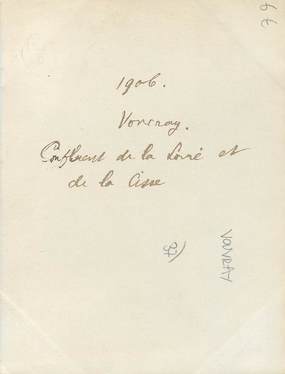 1906.
Vouvray.
Confluent de la Loire et
de la Cisse
37)
VOUVRAY
79